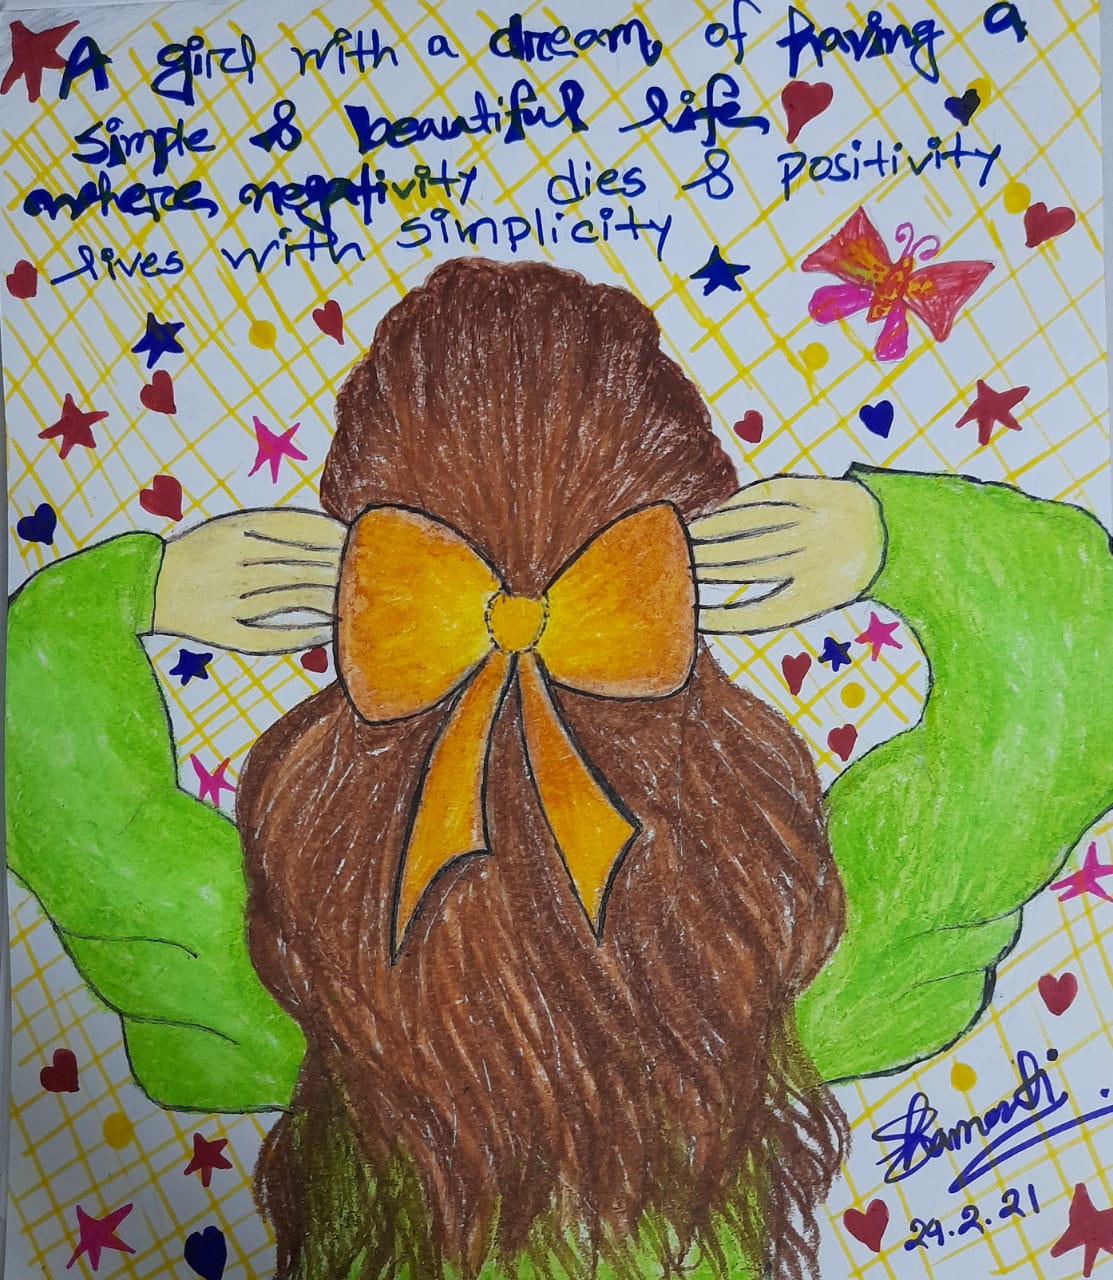 A girl with a dream of having a
simple & beautiful life
where negativity dies & positivity
lives with simplicity
24.2.21